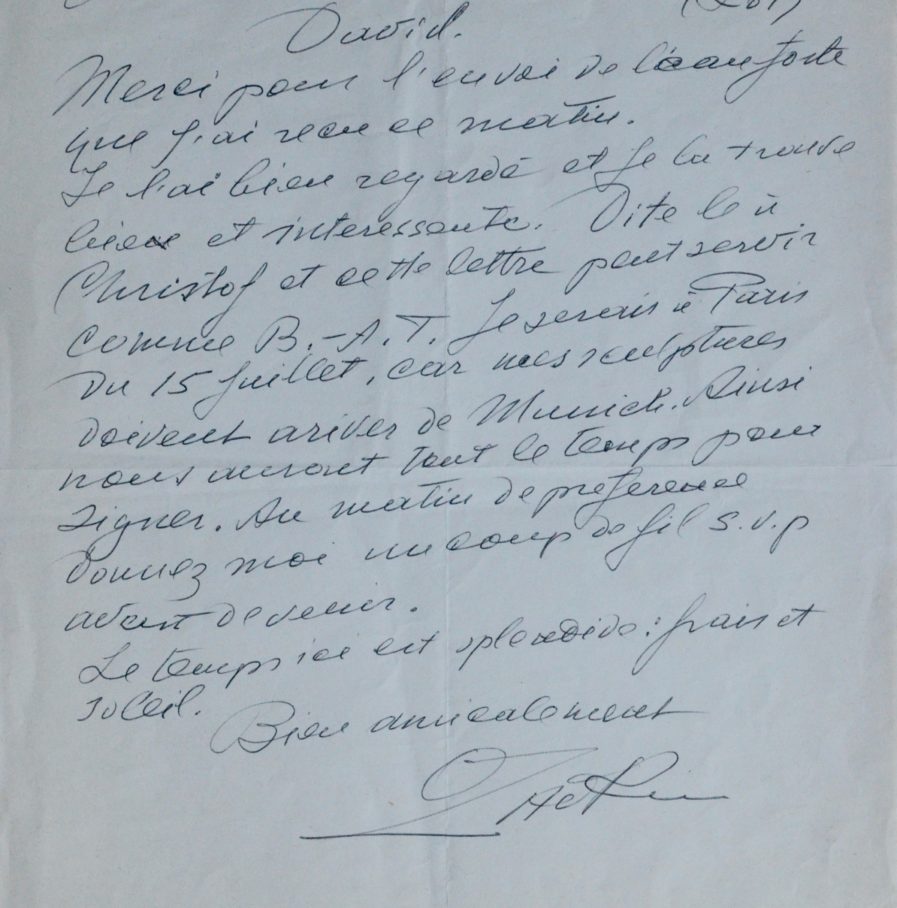 David.
Merci pour l'envoi de l'eau forte
que j'ai reçu ce matin.
Je l'ai bien regardé et je la trouve
bien et interessente. Dite le à
Christof et cette lettre peut servir
comme B.-A.T. Je serais à Paris
du 15 juillet, car mes sculptures
doivent ariver de Munich. Ainsi
nous auront tout le temps pour
signer. Au matin de preference
donnez moi un coup de fil s.v.p
avant de venir.
Le temps ici est splendide: frais et
soleil.
Bien amicalement